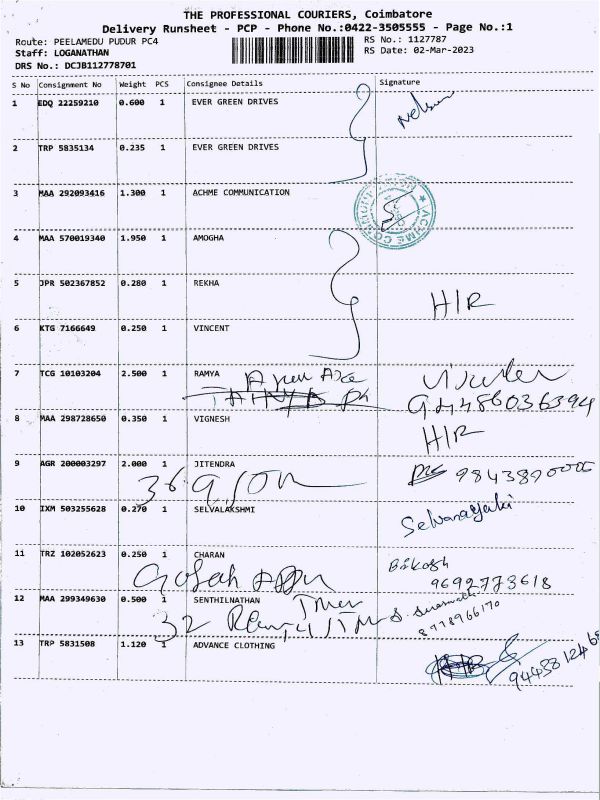 THE PROFESSIONAL COURIERS, Coimbatore
Delivery Runsheet - PCP - Phone No.:0422-3505555 - Page No.:1
Route: PEELAMEDU PUDUR PC4
RS No.: 1127787
Staff: LOGANATHAN
RS Date: 02-Mar-2023
DRS No.: DCJB112778701
S No Consignment No Weight PCS Consignee Details Signature
1 EDQ 22259210 0.600 1 EVER GREEN DRIVES Nelsun
2 TRP 5835134 0.235 1 EVER GREEN DRIVES
3 MAA 292093416 1.300 1 ACHME COMMUNICATION
4 MAA 570019340 1.950 1 AMOGHA
5 JPR 502367852 0.280 1 REKHA H/R
6 KTG 7166649 0.250 1 VINCENT
7 TCG 10103204 2.500 1 RAMYA
944486036394
8 MAA 298728650 0.350 1 VIGNESH H/R
9 AGR 200003297 2.000 1 JITENDRA
10 IXM 503255628 0.270 1 SELVALAKSHMI Selvanayaki
11 TRZ 102052623 0.250 1 CHARAN
9692773618
12 MAA 299349630 0.500 1 SENTHILNATHAN
32
8978966170
13 TRP 5831508 1.120 1 ADVANCE CLOTHING